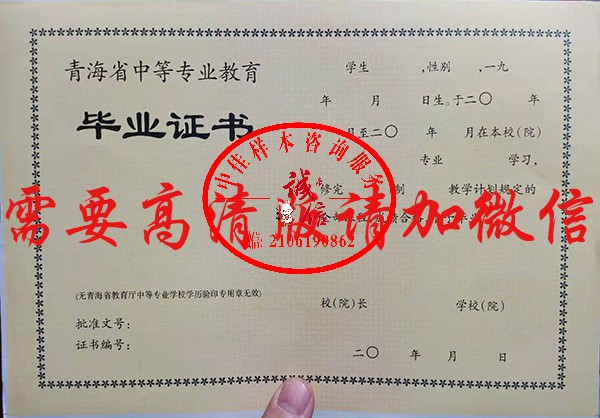 青海省中等专业教育
毕业证书
学生 ,性别 ,一九
年 月 日生。于二〇 年
月至二〇 年 月在本校(院)
专业 学习,
修完 制 教学计划规定的
(无青海省教育厅中等专业学校学历验印专用章无效)
批准文号:
证书编号:
校(院)长 学校(院)
二〇 年 月 日
中佳样本咨询服务
诚
信
2106190862
需要高清版请加微信